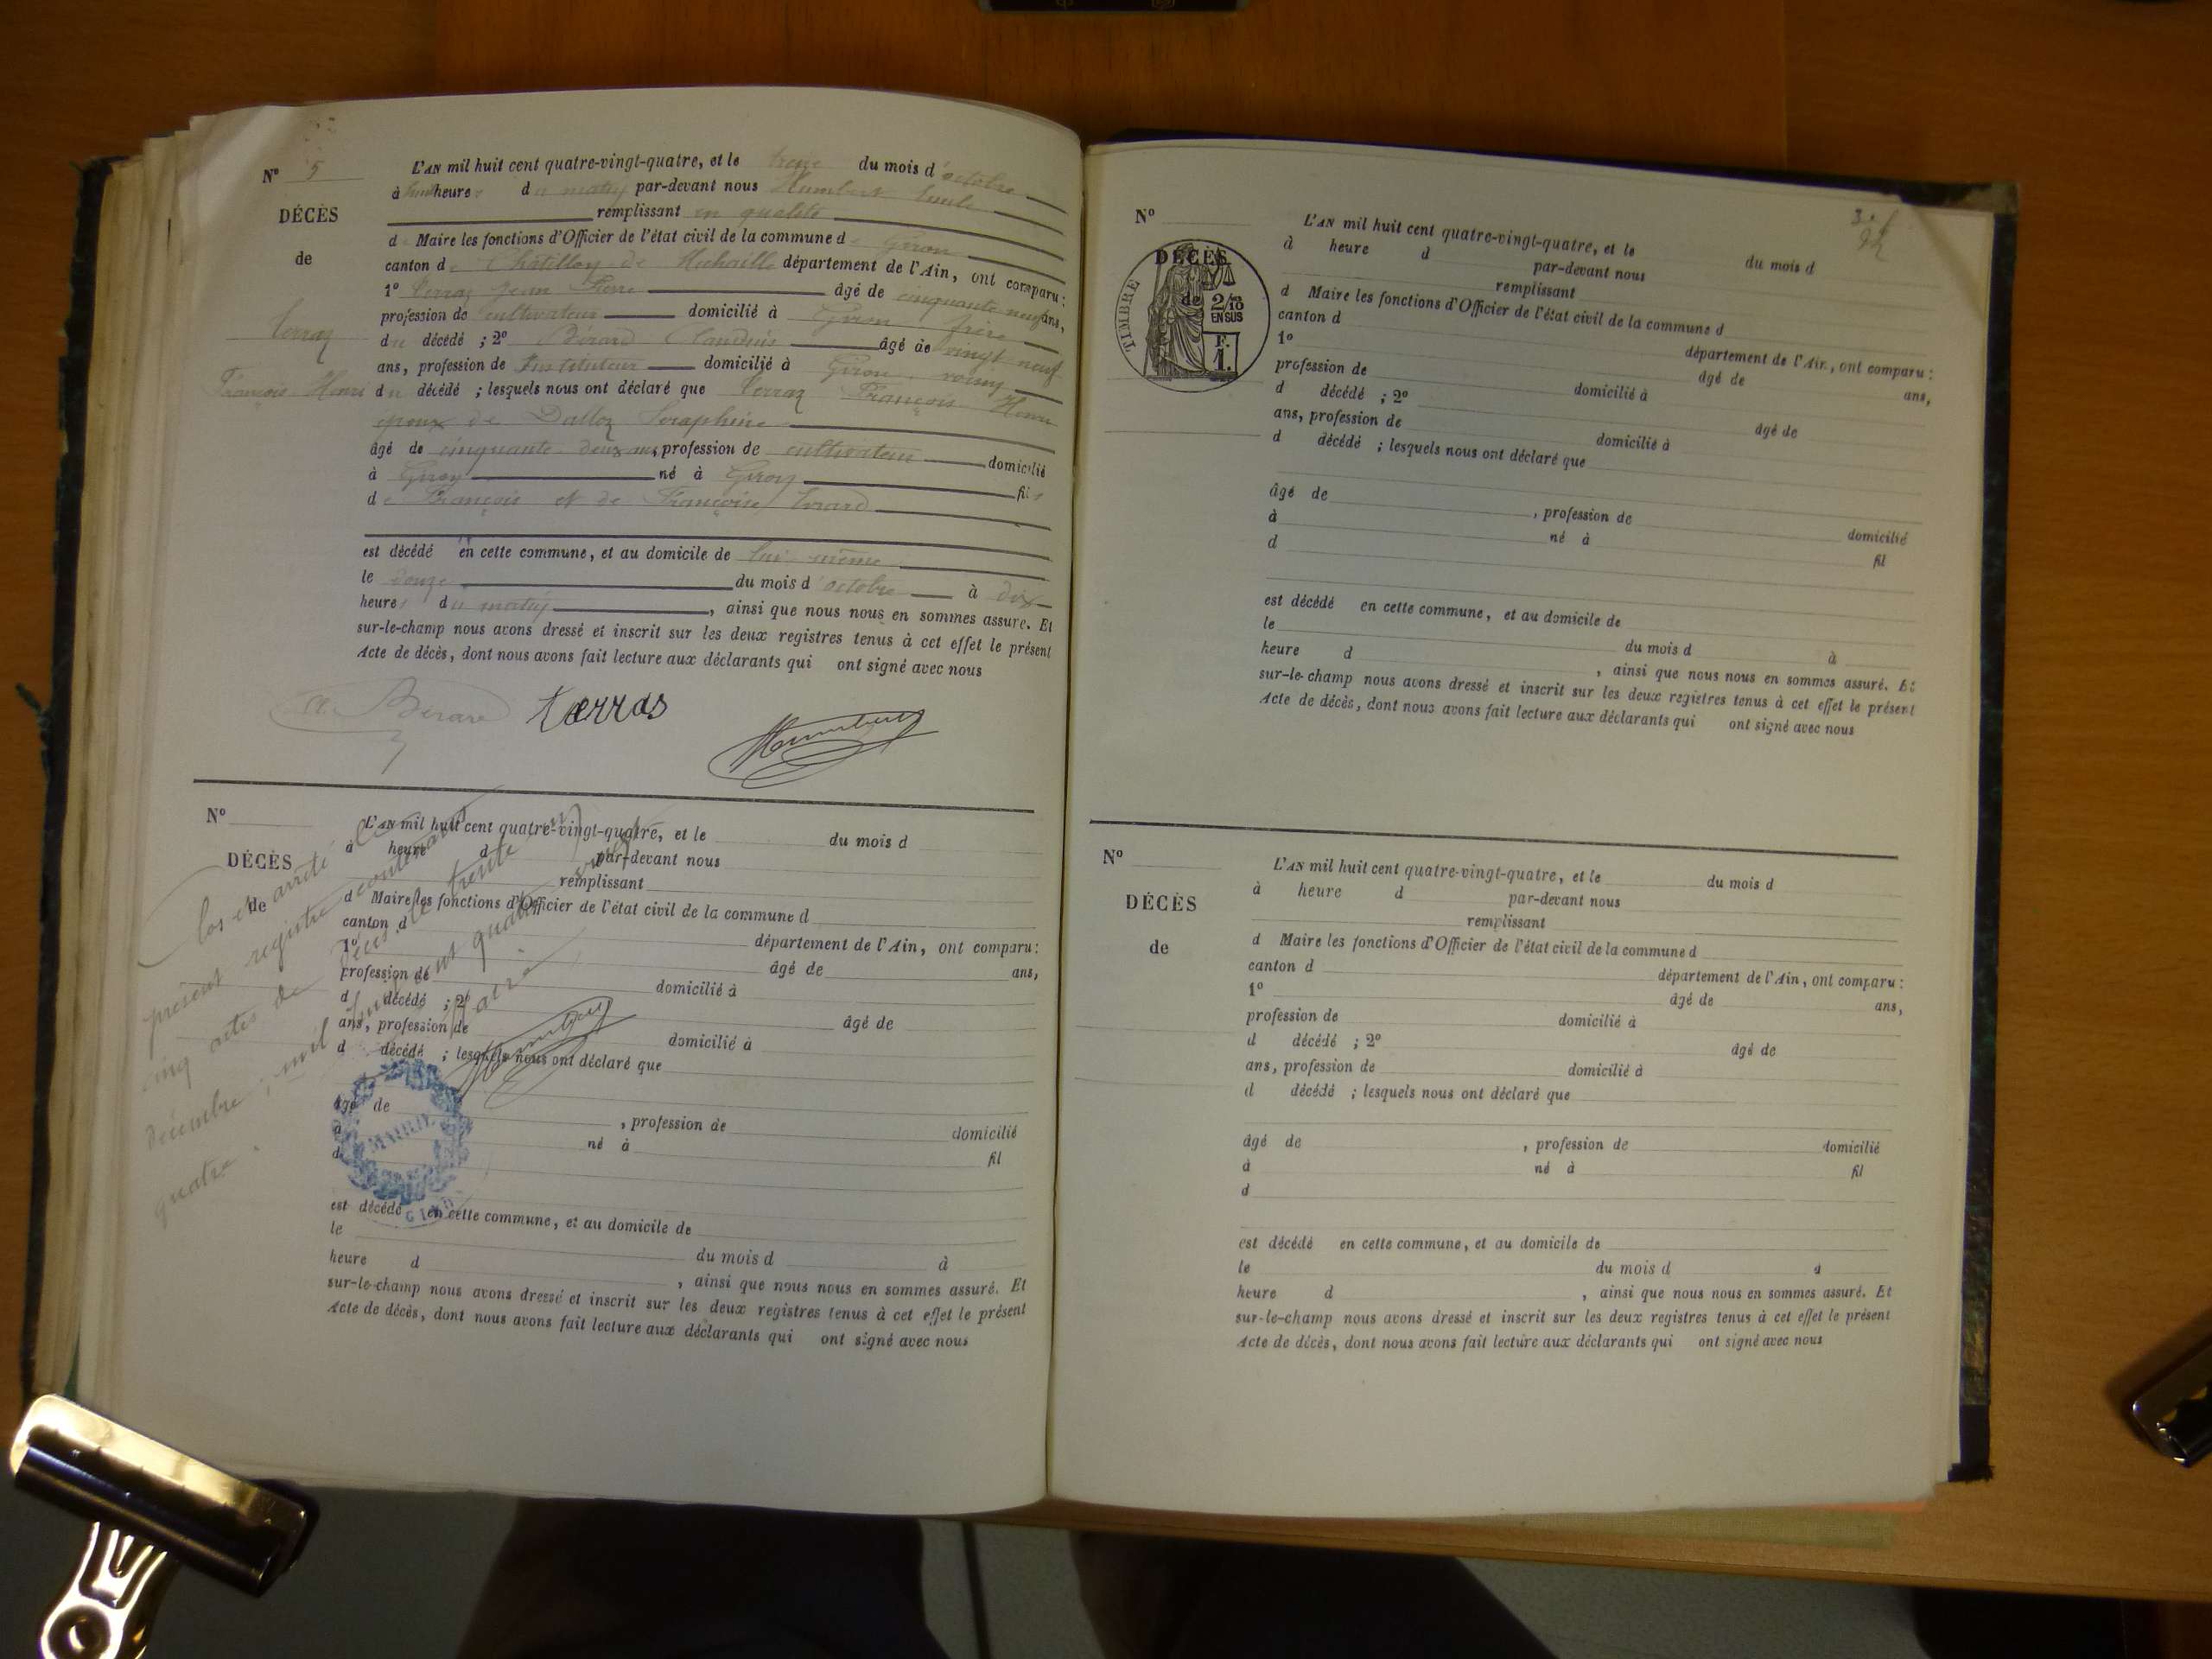 N° 5
DÉCÈS
de
Verraz
François Henri
L'AN mil huit cent quatre-vingt-quatre, et le treize du mois d'octobre
à huit heures du matin par-devant nous Humbert
remplissant en qualité
de Maire les fonctions d'Officier de l'état civil de la commune de Giron
canton de Châtillon de Michaille département de l'Ain, ont comparu:
1° Verraz Jean Pierre âgé de cinquante-neuf ans,
profession de cultivateur domicilié à Giron frère
du décédé ; 2° Bérard Claudius âgé de vingt-neuf
ans, profession de Instituteur domicilié à Giron voisin
du décédé ; lesquels nous ont déclaré que Verraz François Henri
époux de Dalloz Séraphine
âgé de cinquante deux ans, profession de cultivateur domicilié
à Giron né à Giron fils
de François et de Françoise
est décédé en cette commune, et au domicile de lui-même
le douze du mois d'octobre à dix
heures du matin, ainsi que nous nous en sommes assuré. Et
sur-le-champ nous avons dressé et inscrit sur les deux registres tenus à cet effet le présent
Acte de décès, dont nous avons fait lecture aux déclarants qui ont signé avec nous
Cl. Bérard Verras Humbert
N°
DÉCÈS
de
L'AN mil huit cent quatre-vingt-quatre, et le du mois d
à heure d par-devant nous
remplissant
d Maire les fonctions d'Officier de l'état civil de la commune d
canton d département de l'Ain, ont comparu:
1° âgé de ans,
profession de domicilié à
d décédé ; 2° âgé de
ans, profession de domicilié à
d décédé ; lesquels nous ont déclaré que
âgé de , profession de domicilié
à né à fil
d
est décédé en cette commune, et au domicile de
le du mois d à
heure d , ainsi que nous nous en sommes assuré. Et
sur-le-champ nous avons dressé et inscrit sur les deux registres tenus à cet effet le présent
Acte de décès, dont nous avons fait lecture aux déclarants qui ont signé avec nous
Clos et arrêté le
présent registre contenant
cinq actes de décès le trente un
décembre, mil huit cent quatre vingt
quatre.
Humbert
MAIRIE
N°
DÉCÈS
de
TIMBRE
2/10
EN SUS
F.
1.
L'AN mil huit cent quatre-vingt-quatre, et le du mois d
à heure d par-devant nous
remplissant
d Maire les fonctions d'Officier de l'état civil de la commune d
canton d département de l'Ain, ont comparu:
1° âgé de ans,
profession de domicilié à
d décédé ; 2° âgé de
ans, profession de domicilié à
d décédé ; lesquels nous ont déclaré que
âgé de , profession de domicilié
à né à fil
d
est décédé en cette commune, et au domicile de
le du mois d à
heure d , ainsi que nous nous en sommes assuré. Et
sur-le-champ nous avons dressé et inscrit sur les deux registres tenus à cet effet le présent
Acte de décès, dont nous avons fait lecture aux déclarants qui ont signé avec nous
N°
DÉCÈS
de
L'AN mil huit cent quatre-vingt-quatre, et le du mois d
à heure d par-devant nous
remplissant
d Maire les fonctions d'Officier de l'état civil de la commune d
canton d département de l'Ain, ont comparu:
1° âgé de ans,
profession de domicilié à
d décédé ; 2° âgé de
ans, profession de domicilié à
d décédé ; lesquels nous ont déclaré que
âgé de , profession de domicilié
à né à fil
d
est décédé en cette commune, et au domicile de
le du mois d à
heure d , ainsi que nous nous en sommes assuré. Et
sur-le-champ nous avons dressé et inscrit sur les deux registres tenus à cet effet le présent
Acte de décès, dont nous avons fait lecture aux déclarants qui ont signé avec nous